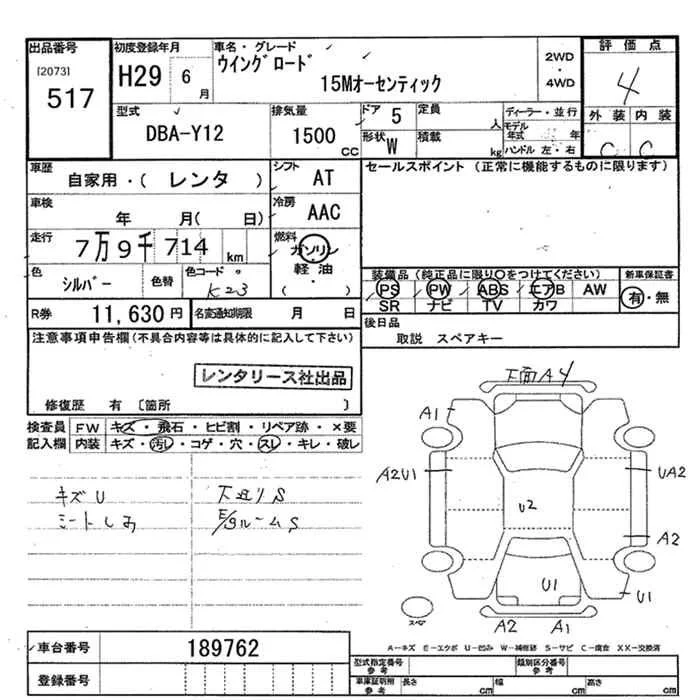 出品番号
[2073]
517
初度登録年月
H29 6月
車名・グレード
ウイングロード
15Mオーセンティック
2WD
・
4WD
評価点
4
外装 内装
C C
型式
DBA-Y12
排気量
1500 CC
ドア 5
定員 人
形状 W
積載 kg
ディーラー・並行
モデル年式 年
ハンドル 左・右
車歴
自家用・( レンタ )
シフト AT
車検
年 月( 日)
冷房 AAC
走行
7万9千714 km
燃料
ガソリン
軽油・
( )
色
シルバー
色替
色コード
K23
セールスポイント (正常に機能するものに限ります)
装備品 (純正品に限り○をつけてください)
PS PW ABS エアB AW
SR ナビ TV カワ
新車保証書
有・無
R券 11,630円
名変通知期限 月 日
後日品
取説 スペアキー
注意事項申告欄(不具合内容等は具体的に記入して下さい)
レンタリース社出品
修復歴 有 〔箇所 〕
検査員記入欄
FW キズ・飛石・ヒビ割・リペア跡・×要
内装 キズ・汚レ・コゲ・穴・スレ・キレ・破レ
キズU
シートしみ
下廻りS
E/gルームS
下面A4
A1
A2U1
UA2
U2
A2
U1
U1
A2 A1
スペア
A-キズ E-エクボ U-凹み W-補修跡 S-サビ C-腐食 XX-交換済
車台番号 189762
登録番号
型式指定番号 参考
類別区分番号 参考
車庫証明用 参考
長さ cm 幅 cm 高さ cm